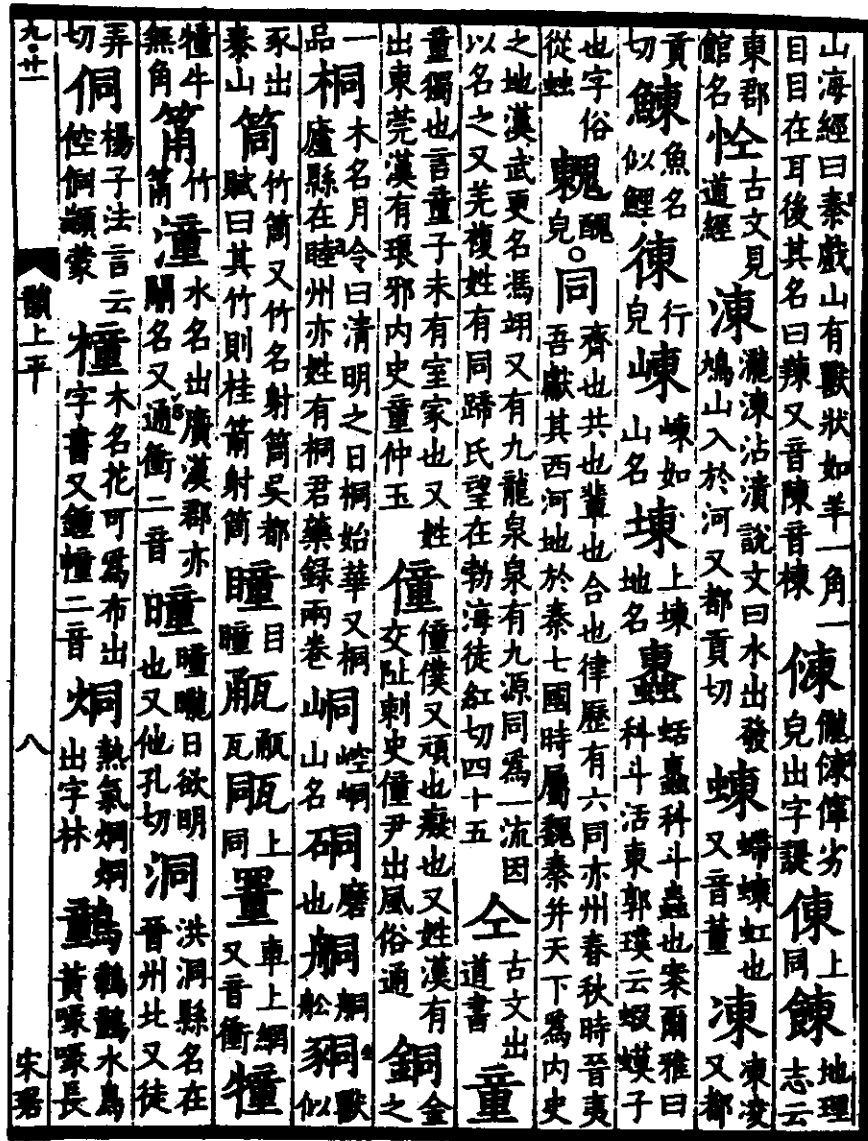 山海經曰秦戲山有獸狀如羊一角一目目在耳後其名曰䍶又音陳音棟 𠍀 儱𠍀儜劣皃出字諟 倲 上同 餗 地理志云
東郡館名 𢓘 古文見道經 涷 瀧涷沾漬說文曰水出發鳩山入於河又都貢切 蝀 螮蝀虹也又音董 凍 凍凌又都
貢切 鯟 魚名似鯉 徚 行皃 崠 崠如山名 埬 上埬地名 𧓕 蛞𧓕科斗蟲也案爾雅曰科斗活東郭璞云蝦蟆子
也字俗從䖵 𩳣 醜皃 ○ 同 齊也共也輩也合也律歷有六同亦州春秋時晉夷吾獻其西河地於秦七國時屬魏秦并天下爲内史
之地漢武更名馮翊又有九龍泉泉有九源同爲一流因以名之又羌複姓有同蹄氏望在勃海徒紅切四十五 仝 古文出道書 童
童獨也言童子未有室家也又姓出東莞漢有琅邪内史童仲玉 僮 僮僕又頑也癡也又姓漢有交阯刺史僮尹出風俗通 銅 金之
一品 桐 木名月令曰清明之日桐始華又桐廬縣在睦州亦姓有桐君藥録兩卷 峒 崆峒山名 硐 磨也 䑸 䑸舩 𧱁 獸似
豕出泰山 筒 竹筒又竹名射筒吳都賦曰其竹則桂箭射筒 瞳 目瞳 㼧 㼿瓦 㼧 上同 罿 車上網又音衝 犝
犝牛無角 筩 竹筩 潼 水名出廣漢郡亦關名又通衝二音 曈 曈曨日欲明也又他孔切 洞 洪洞縣名在晉州北又徒
弄切 侗 楊子法言云倥侗顓蒙 橦 木名花可爲布出字書又鍾幢二音 烔 熱氣烔烔出字林 鷾鶇水鳥黃喙喙長
九・廿一
韻上平
八
宋琚